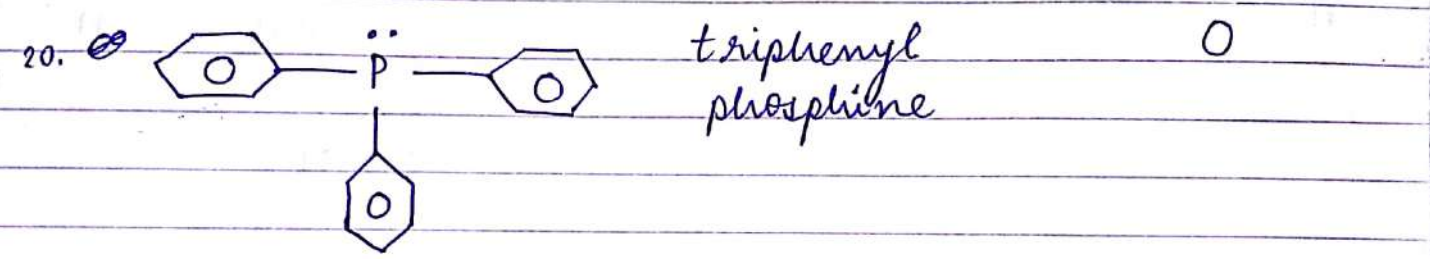 20. P triphenyl 0
phosphine